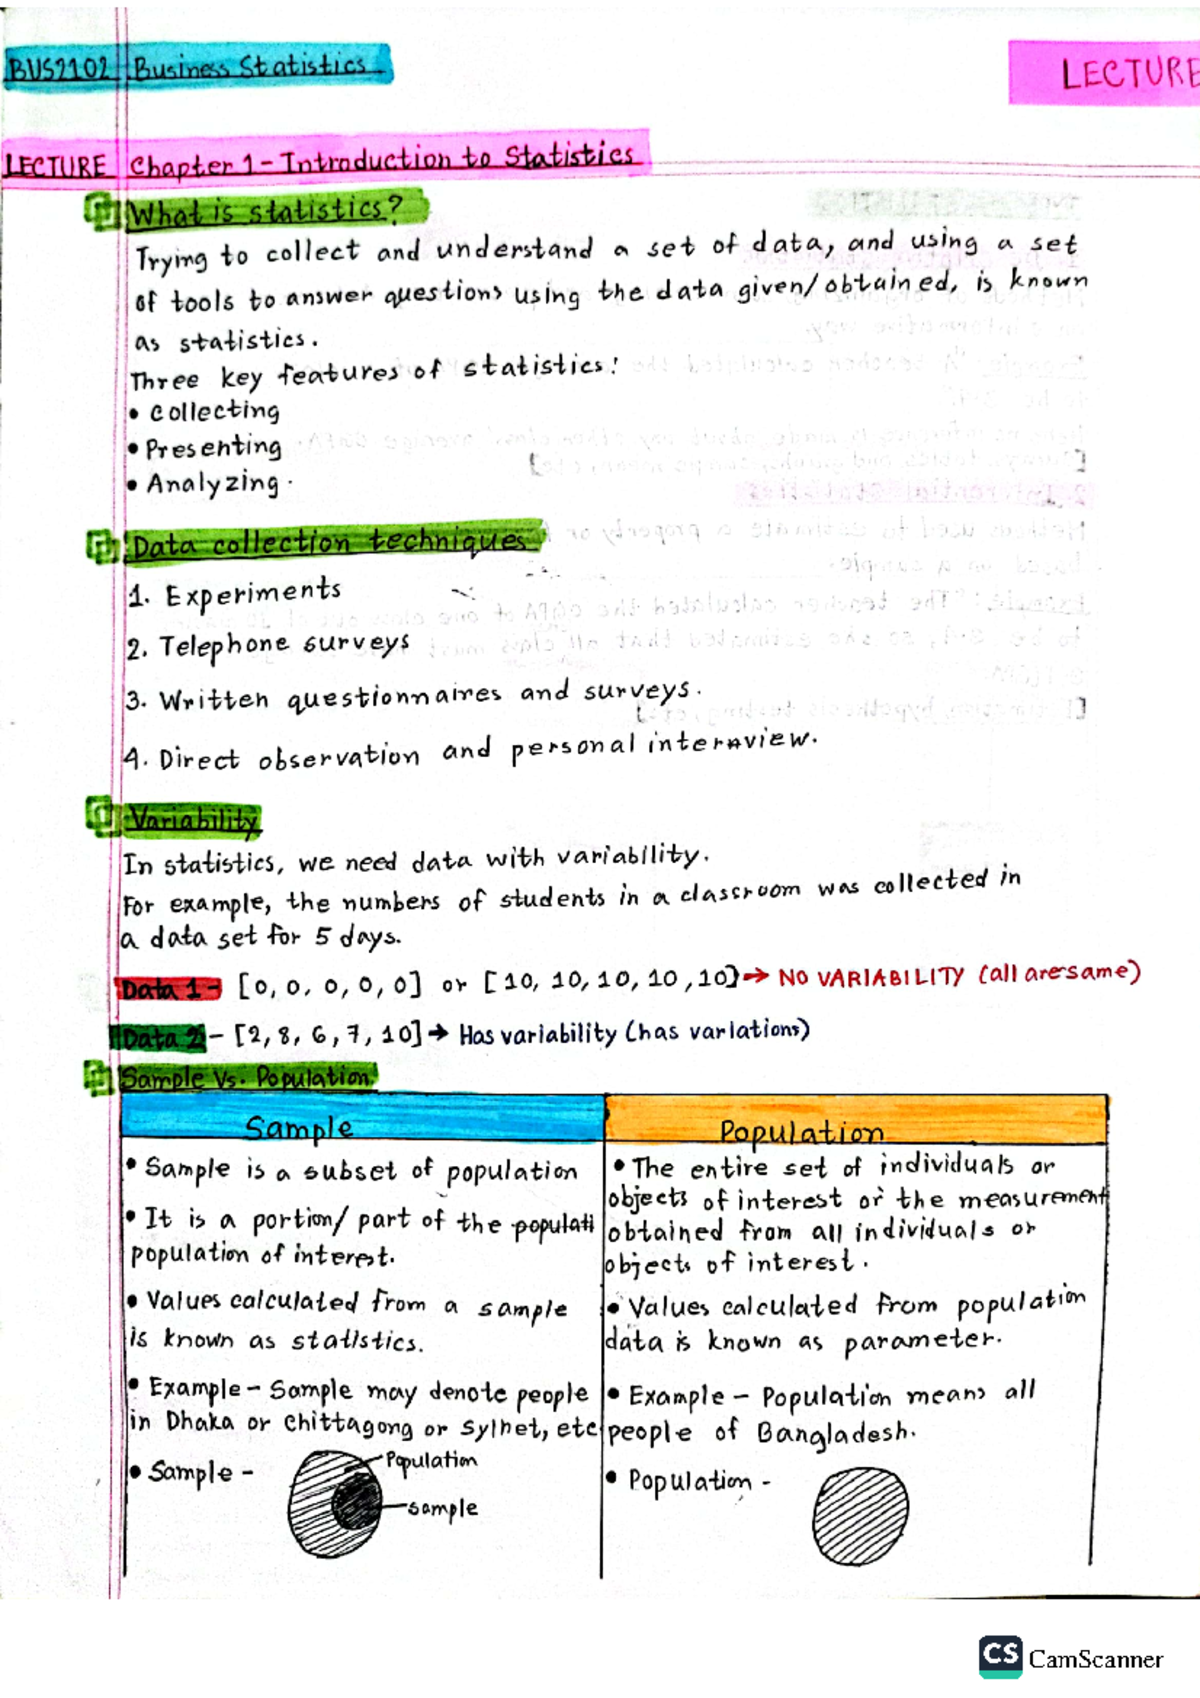 BUS2102 Business Statistics
LECTURE
LECTURE Chapter 1 - Introduction to Statistics
What is statistics?
Trying to collect and understand a set of data, and using a set
of tools to answer questions using the data given/obtained, is known
as statistics.
Three key features of statistics:
• collecting
• Presenting
• Analyzing.
Data collection techniques
1. Experiments
2. Telephone surveys
3. Written questionnaires and surveys.
4. Direct observation and personal interview.
Variability
In statistics, we need data with variability.
For example, the numbers of students in a classroom was collected in
a data set for 5 days.
Data 1 - [0, 0, 0, 0, 0] or [10, 10, 10, 10, 10] → NO VARIABILITY (all are same)
Data 2 - [2, 8, 6, 7, 10] → Has variability (has variations)
Sample Vs. Population
Sample
• Sample is a subset of population
• It is a portion/part of the populati
population of interest.
• Values calculated from a sample
is known as statistics.
• Example - Sample may denote people
in Dhaka or Chittagong or Sylhet, etc
• Sample -
Population
sample
Population
• The entire set of individuals or
objects of interest or the measurement
obtained from all individuals or
objects of interest.
• Values calculated from population
data is known as parameter.
• Example - Population means all
people of Bangladesh.
• Population -
CS CamScanner